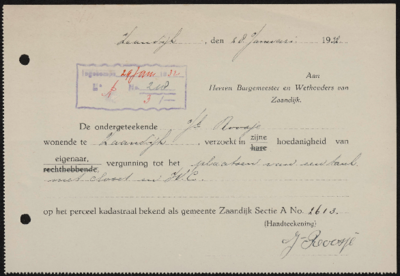 Zaandijk, den 28 Januari 19
Aan
Heeren Burgemeester en Wethouders van
Zaandijk.
Ingekomen
No.
De ondergeteekende Jb Roosje
wonende te Zaandijk, verzoekt in zijne hare hoedanigheid van
eigenaar, rechthebbende, vergunning tot het plaatsen van een tank
met closet en W.C.
op het perceel kadastraal bekend als gemeente Zaandijk Sectie A No. 1613.
(Handteekening)
Jb Roosje